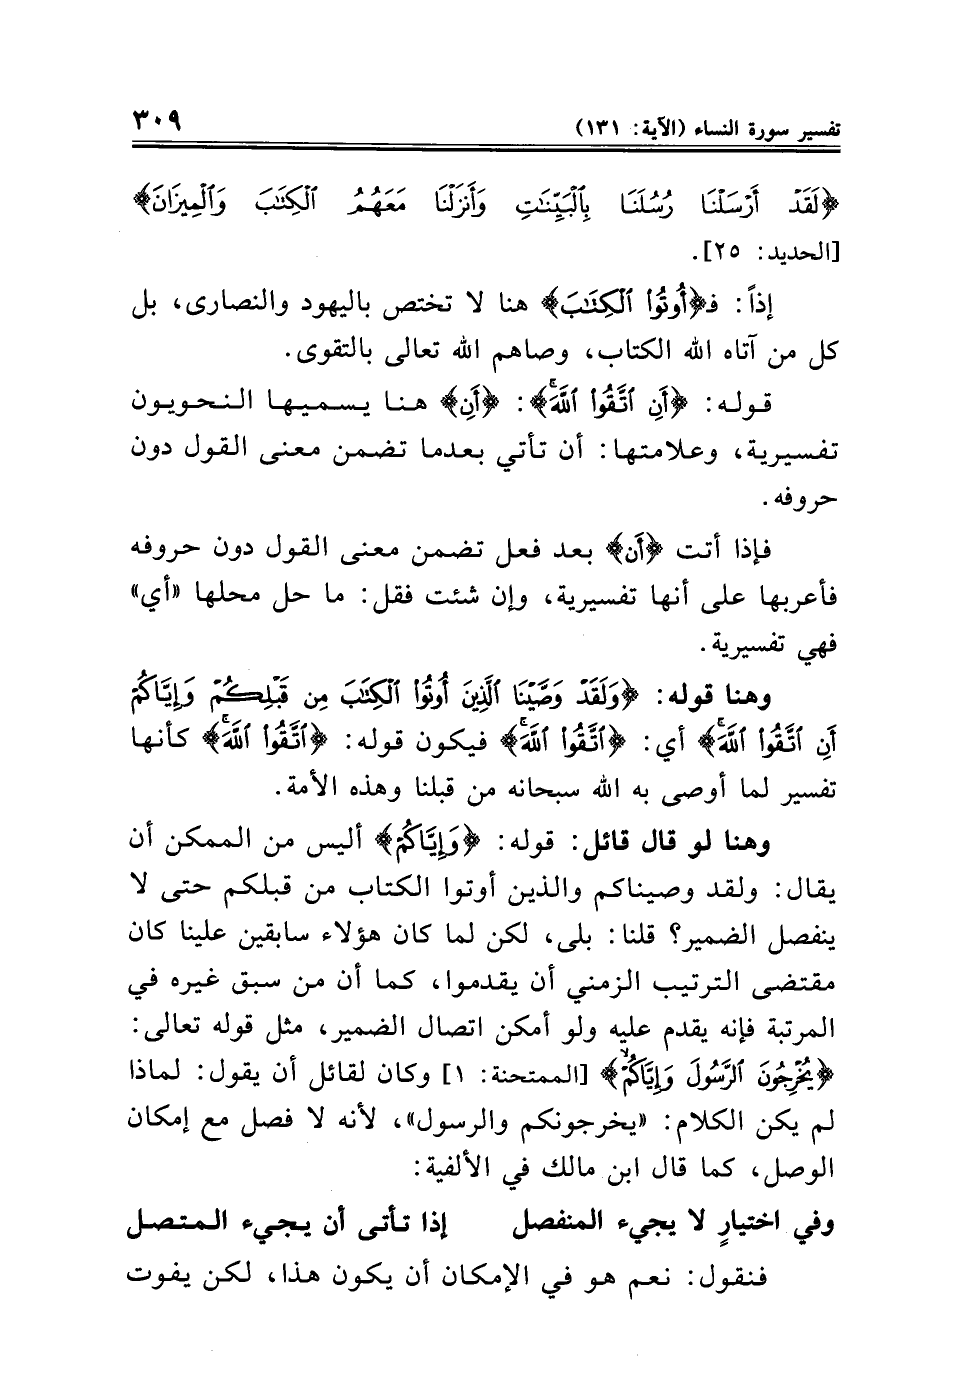 تفسير سورة النساء (الآية: ١٣١) ٣٠٩
﴿لَقَدْ أَرْسَلْنَا رُسُلَنَا بِٱلْبَيِّنَٰتِ وَأَنزَلْنَا مَعَهُمُ ٱلْكِتَٰبَ وَٱلْمِيزَانَ﴾
[الحديد: ٢٥].
إذاً: فـ﴿أُوتُوا۟ ٱلْكِتَٰبَ﴾ هنا لا تختص باليهود والنصارى، بل
كل من آتاه الله الكتاب، وصاهم الله تعالى بالتقوى.
قوله: ﴿أَنِ ٱتَّقُوا۟ ٱللَّهَۚ﴾: ﴿أَنِ﴾ هنا يسميها النحويون
تفسيرية، وعلامتها: أن تأتي بعدما تضمن معنى القول دون
حروفه.
فإذا أتت ﴿أَن﴾ بعد فعل تضمن معنى القول دون حروفه
فأعربها على أنها تفسيرية، وإن شئت فقل: ما حل محلها «أي»
فهي تفسيرية.
وهنا قوله: ﴿وَلَقَدْ وَصَّيْنَا ٱلَّذِينَ أُوتُوا۟ ٱلْكِتَٰبَ مِن قَبْلِكُمْ وَإِيَّاكُمْ
أَنِ ٱتَّقُوا۟ ٱللَّهَۚ﴾ أي: ﴿ٱتَّقُوا۟ ٱللَّهَۚ﴾ فيكون قوله: ﴿ٱتَّقُوا۟ ٱللَّهَۚ﴾ كأنها
تفسير لما أوصى به الله سبحانه من قبلنا وهذه الأمة.
وهنا لو قال قائل: قوله: ﴿وَإِيَّاكُمْ﴾ أليس من الممكن أن
يقال: ولقد وصيناكم والذين أوتوا الكتاب من قبلكم حتى لا
ينفصل الضمير؟ قلنا: بلى، لكن لما كان هؤلاء سابقين علينا كان
مقتضى الترتيب الزمني أن يقدموا، كما أن من سبق غيره في
المرتبة فإنه يقدم عليه ولو أمكن اتصال الضمير، مثل قوله تعالى:
﴿يُخْرِجُونَ ٱلرَّسُولَ وَإِيَّاكُمْۙ﴾ [الممتحنة: ١] وكان لقائل أن يقول: لماذا
لم يكن الكلام: «يخرجونكم والرسول»، لأنه لا فصل مع إمكان
الوصل، كما قال ابن مالك في الألفية:
وفي اختيارٍ لا يجيء المنفصل إذا تأتى أن يجيء المتصل
فنقول: نعم هو في الإمكان أن يكون هذا، لكن يفوت